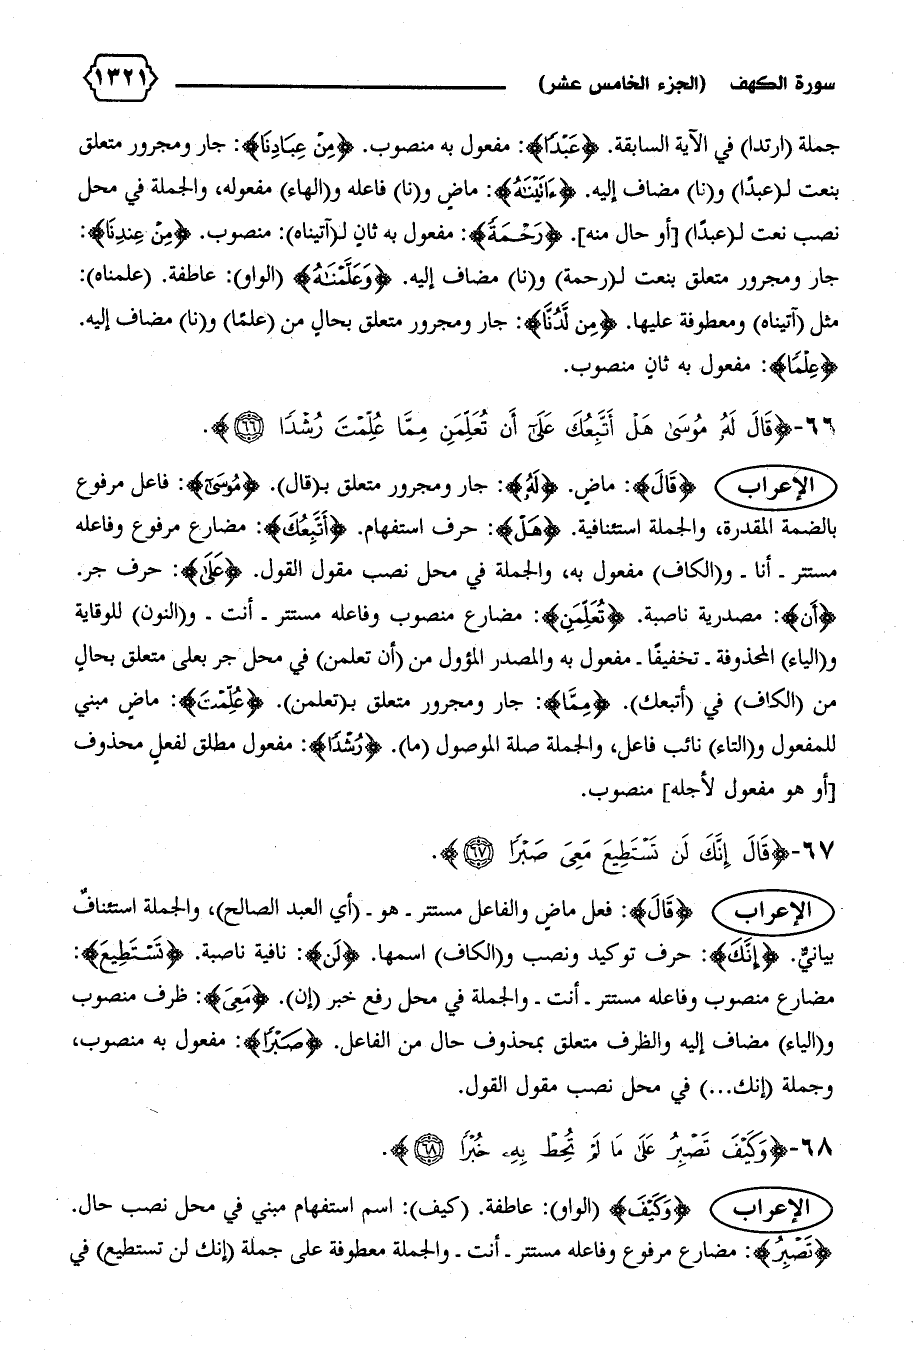 سورة الكهف (الجزء الخامس عشر) ١٣٢١
جملة (ارتدا) في الآية السابقة. ﴿عَبْدًا﴾: مفعول به منصوب. ﴿مِنْ عِبَادِنَا﴾: جار ومجرور متعلق
بنعت لـ(عبدًا) و(نا) مضاف إليه. ﴿ءَاتَيْنَٰهُ﴾: ماضٍ و(نا) فاعله و(الهاء) مفعوله، والجملة في محل
نصب نعت لـ(عبدًا) [أو حال منه]. ﴿رَحْمَةً﴾: مفعول به ثانٍ لـ(آتيناه): منصوب. ﴿مِنْ عِندِنَا﴾:
جار ومجرور متعلق بنعت لـ(رحمة) و(نا) مضاف إليه. ﴿وَعَلَّمْنَٰهُ﴾ (الواو): عاطفة. (علمناه):
مثل (آتيناه) ومعطوفة عليها. ﴿مِن لَّدُنَّا﴾: جار ومجرور متعلق بحالٍ من (علمًا) و(نا) مضاف إليه.
﴿عِلْمًا﴾: مفعول به ثانٍ منصوب.
٦٦-﴿قَالَ لَهُۥ مُوسَىٰ هَلْ أَتَّبِعُكَ عَلَىٰٓ أَن تُعَلِّمَنِ مِمَّا عُلِّمْتَ رُشْدًا ٦٦﴾.
الإعراب ﴿قَالَ﴾: ماضٍ. ﴿لَهُۥ﴾: جار ومجرور متعلق بـ(قال). ﴿مُوسَىٰٓ﴾: فاعل مرفوع
بالضمة المقدرة، والجملة استئنافية. ﴿هَلْ﴾: حرف استفهام. ﴿أَتَّبِعُكَ﴾: مضارع مرفوع وفاعله
مستتر ـ أنا ـ و(الكاف) مفعول به، والجملة في محل نصب مقول القول. ﴿عَلَىٰ﴾: حرف جر.
﴿أَن﴾: مصدرية ناصبة. ﴿تُعَلِّمَنِ﴾: مضارع منصوب وفاعله مستتر ـ أنت ـ و(النون) للوقاية
و(الياء) المحذوفة ـ تخفيفًا ـ مفعول به والمصدر المؤول من (أن تعلمن) في محل جر بعلى متعلق بحالٍ
من (الكاف) في (أتبعك). ﴿مِمَّا﴾: جار ومجرور متعلق بـ(تعلمن). ﴿عُلِّمْتَ﴾: ماضٍ مبني
للمفعول و(التاء) نائب فاعل، والجملة صلة الموصول (ما). ﴿رُشْدًا﴾: مفعول مطلق لفعلٍ محذوف
[أو هو مفعول لأجله] منصوب.
٦٧-﴿قَالَ إِنَّكَ لَن تَسْتَطِيعَ مَعِىَ صَبْرًا ٦٧﴾.
الإعراب ﴿قَالَ﴾: فعل ماضٍ والفاعل مستتر ـ هو ـ (أي العبد الصالح)، والجملة استئنافٌ
بيانيٌّ. ﴿إِنَّكَ﴾: حرف توكيد ونصب و(الكاف) اسمها. ﴿لَن﴾: نافية ناصبة. ﴿تَسْتَطِيعَ﴾:
مضارع منصوب وفاعله مستتر ـ أنت ـ والجملة في محل رفع خبر (إن). ﴿مَعِىَ﴾: ظرف منصوب
و(الياء) مضاف إليه والظرف متعلق بمحذوف حال من الفاعل. ﴿صَبْرًا﴾: مفعول به منصوب،
وجملة (إنك...) في محل نصب مقول القول.
٦٨-﴿وَكَيْفَ تَصْبِرُ عَلَىٰ مَا لَمْ تُحِطْ بِهِۦ خُبْرًا ٦٨﴾.
الإعراب ﴿وَكَيْفَ﴾ (الواو): عاطفة. (كيف): اسم استفهام مبني في محل نصب حال.
﴿تَصْبِرُ﴾: مضارع مرفوع وفاعله مستتر ـ أنت ـ والجملة معطوفة على جملة (إنك لن تستطيع) في